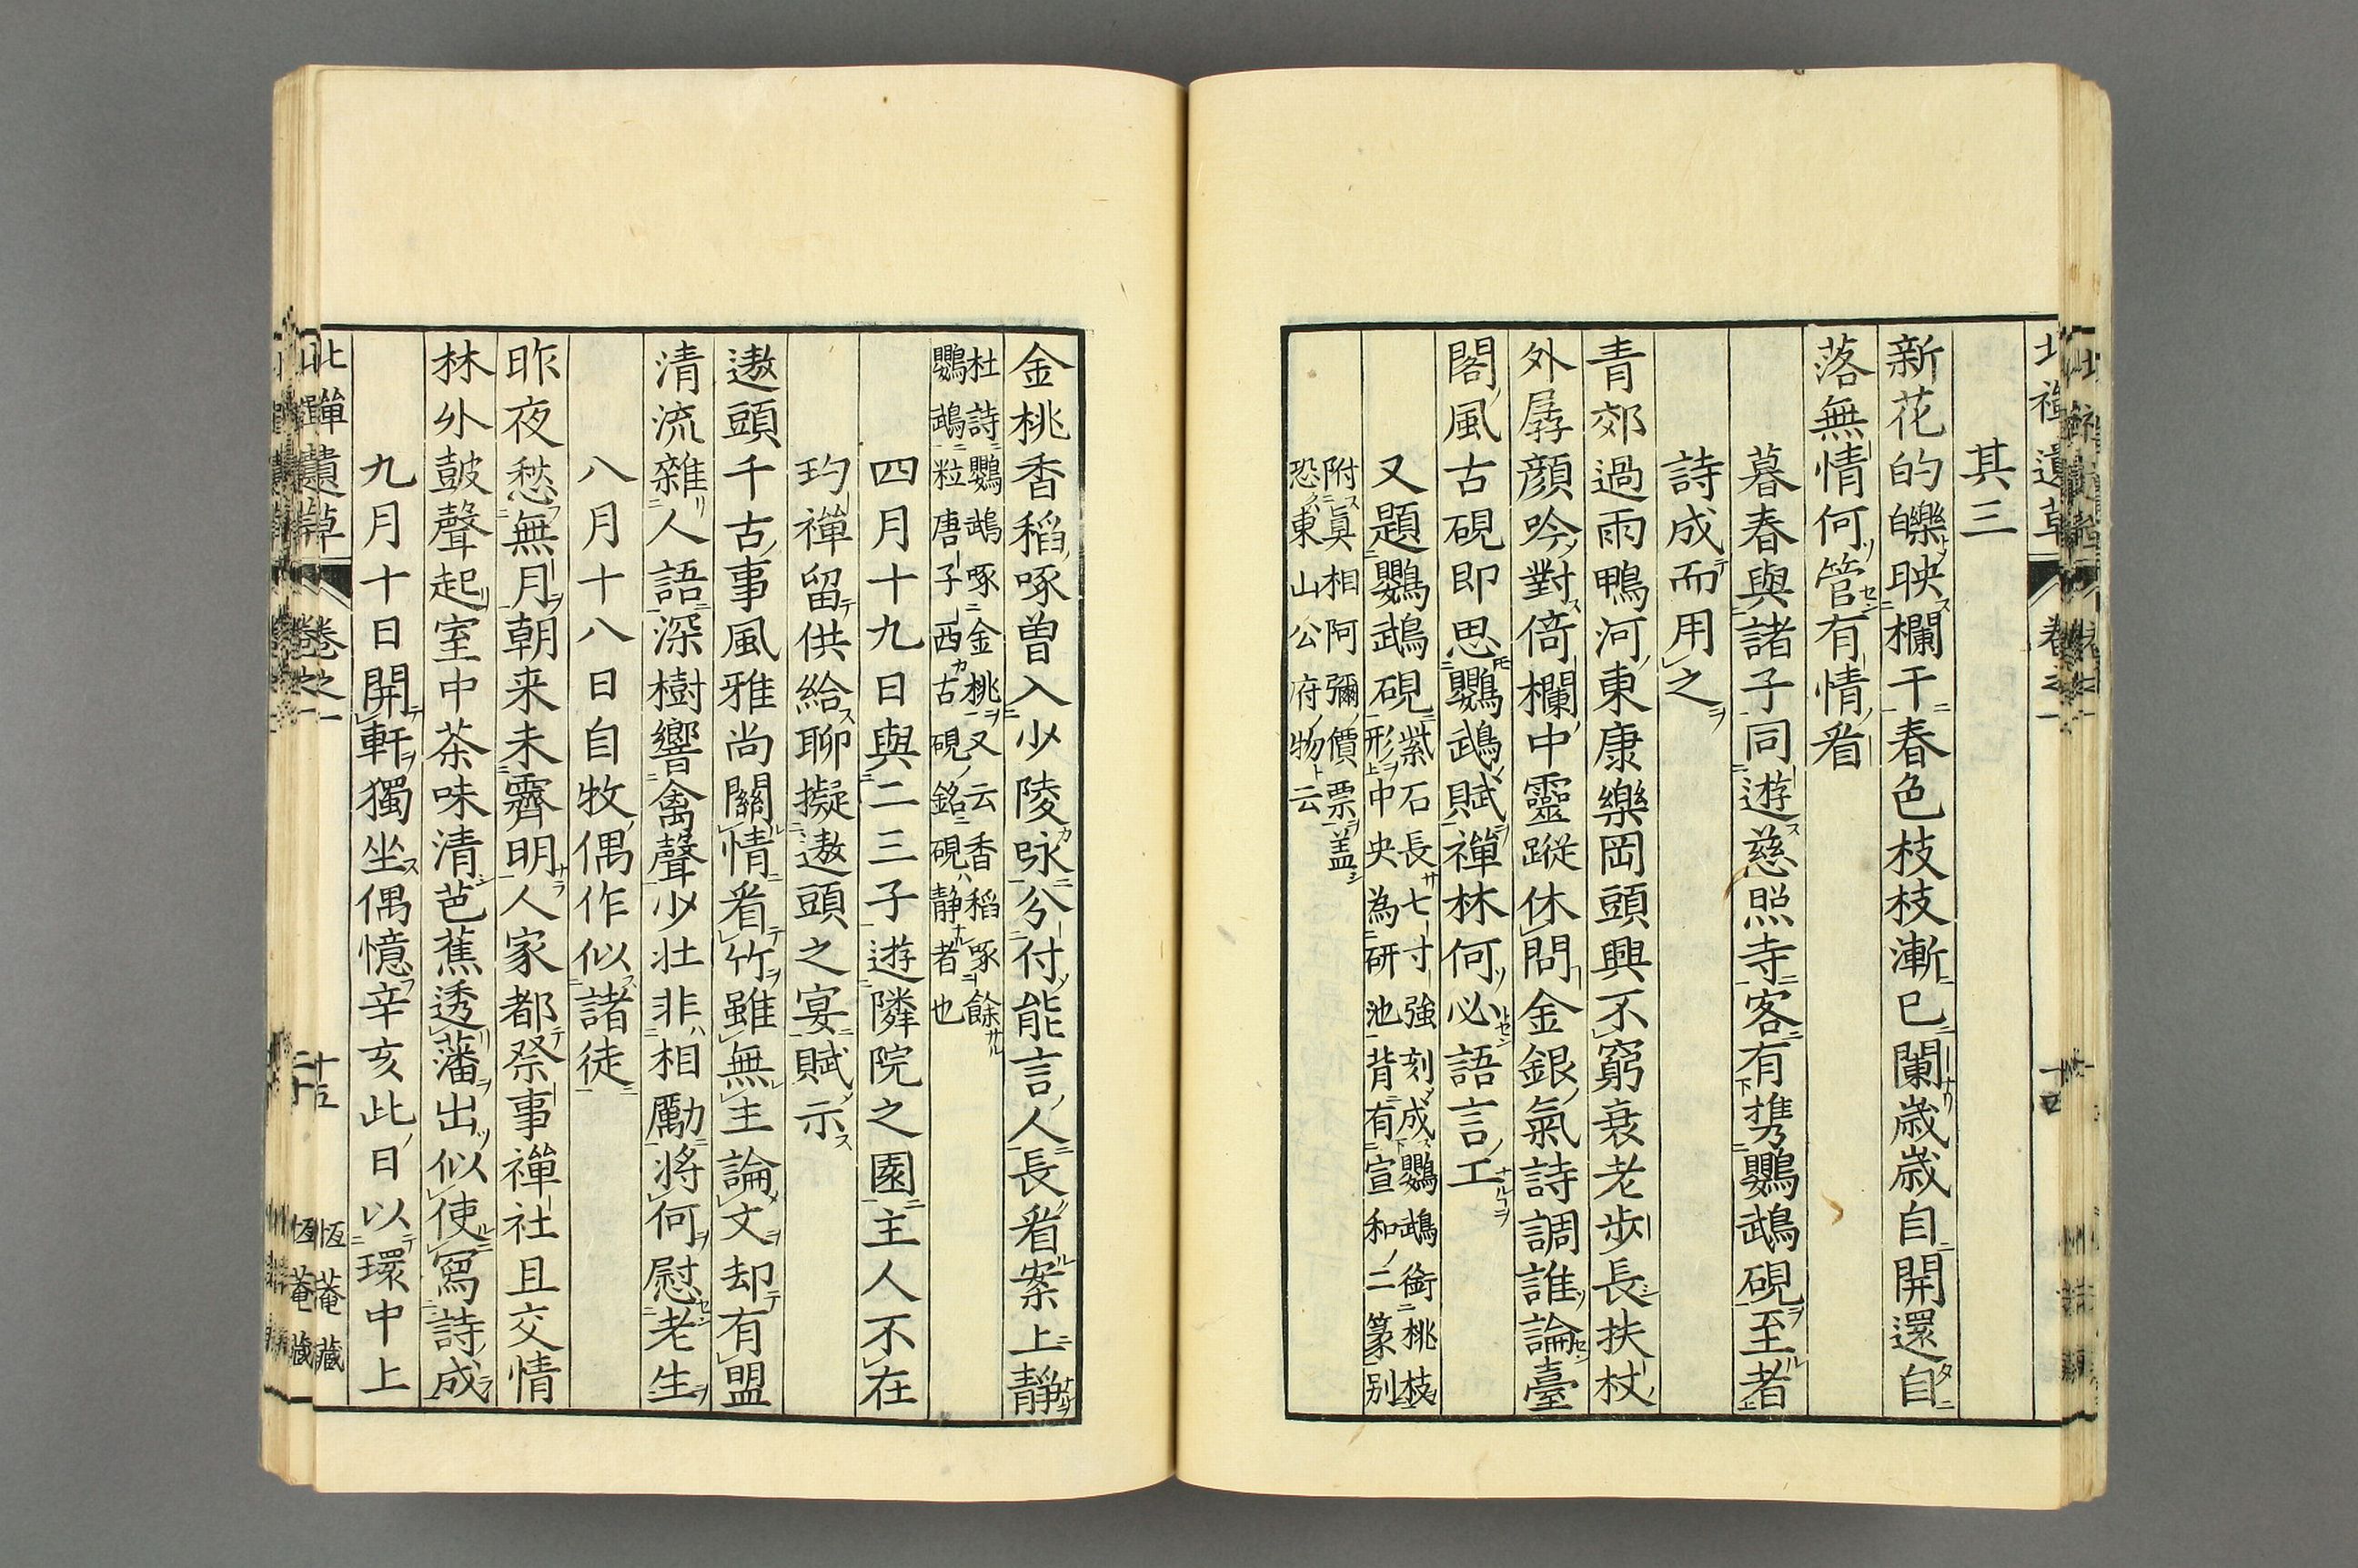 其三
新花的皪映欄干春色枝枝漸已闌歳歳自開還自
落無情何管有情看
暮春與諸子同遊慈照寺客有携鸚鵡硯至者
詩成而用之
青郊過雨鴨河東康樂岡頭興不窮衰老歩長扶杖
外孱顔吟對倚欄中靈蹤休問金銀氣詩調誰論臺
閣風古硯即思鸚鵡賦禪林何必語言工
又題鸚鵡硯
紫石長七寸強刻成鸚鵡銜桃枝
形中央為研池背有宣和二篆別
附眞相阿彌價票盖
恐東山公府物云
金桃香稻啄曽入少陵咏兮付能言人長看案上靜
杜詩鸚鵡啄金桃又云香稻啄餘
鸚鵡粒唐子西古硯銘硯靜者也
四月十九日與二三子遊隣院之園主人不在
玓禪留供給聊擬遨頭之宴賦示
遨頭千古事風雅尚關情看竹雖無主論文却有盟
清流雜人語深樹響禽聲少壮非相勵將何慰老生
八月十八日自牧偶作似諸徒
昨夜愁無月朝来未霽明人家都祭事禪社且交情
林外鼓聲起室中茶味清芭蕉透藩出似使寫詩成
九月十日開軒獨坐偶憶辛亥此日以環中上
北禪遺草
卷之一
十五
恆菴藏